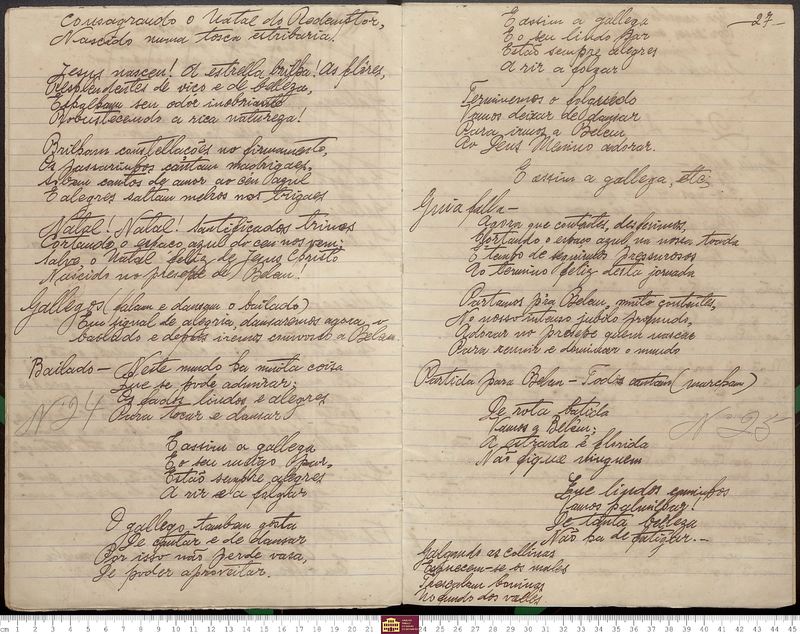 Consagrando o Natal do Redemptor,
Nascido numa tosca estribaria!
Jesus nasceu! A estrella brilha! As flôres,
Resplendentes de viço e de belleza,
Espalham seu odor inebriante
Robustecendo a rica natureza!
Brilham constellações no firmamento,
Os passarinhos cantam madrigaes,
Sobem cantos de amor ao ceu azul
E alegres saltam melros nos trigaes
Natal! Natal! Santificados trinos
Cortando o espaço azul do ceu nos vem;
Salve, o Natal feliz de Jesus Christo
Nascido no presepe de Belem!
Gallegos (falam e dansam o bailado)
Em signal de alegria, dansaremos agora o
bailado e depois iremos comvosco a Belem.
Bailado — Neste mundo ha muita coisa
Que se pode admirar;
Es fados lindos e alegres
Para tocar e dansar
Nº 24
E assim a gallega
E o seu amigo
Estão sempre alegres
A rir e a folgar
O gallego tambem gosta
De cantar e de dansar
Por isso não perde vasa,
De poder aproveitar.
— 27 —
E assim a gallega
E o seu lindo Par
Estão sempre alegres
A rir a folgar
Terminemos o folguedo
Vamos deixar de dansar
Para irmos a Belem
Ao Jesus Menino adorar.
E assim a gallega, etc.
Guia falla —
Agora que contentes,
Cortando o espaço azul na nossa toada
E tempo de seguirmos pressurosos
Ao termino feliz desta jornada
Partamos p'ra Belem, muito contentes,
No nosso intenso jubilo profundo,
Adorar no presepe quem nasceu
Para remir e dominar o mundo
Partida para Belem — Todos cantam (marcham)
De rota batida
Vamos a Belem;
A estrada é florida
Não fique ninguem
Nº 25
Que lindos caminhos
Vamos palmilhar!
De tanta belleza
Não ha de fatigar. —
Galgando as collinas
Esquecem-se os males
No fundo dos valles
cm 1 2 3 4 5 6 7 8 9 10 11 12 13 14 15 16 17 18 19 20 21 24 25 26 27 28 29 30 31 32 33 34 35 36 37 38 39 40 41 42 43 44 45